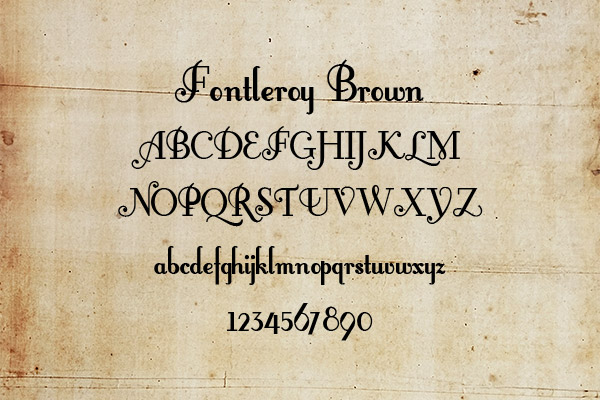 Fontleroy Brown
ABCDEFGHIJKLM
NOPQRSTUVWXYZ
abcdefghijklmnopqrstuvwxyz
1234567890